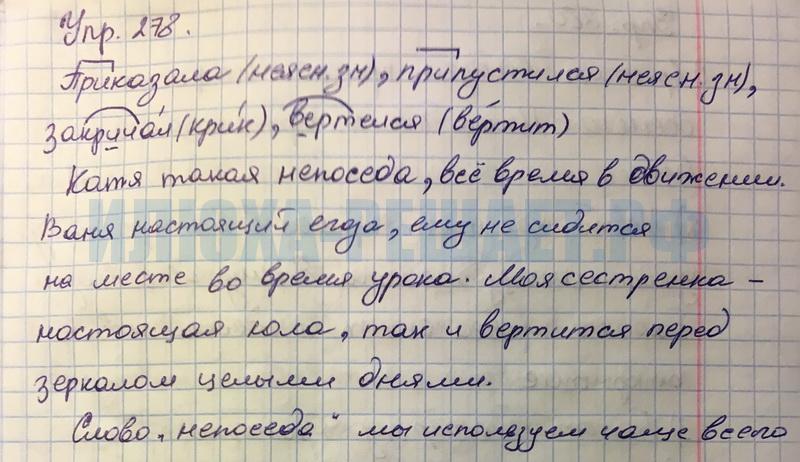 Упр. 278.
Приказала (неясн. зн), припустился (неясн. зн),
закричал (крик), вертелся (вертит)
Катя такая непоседа, всё время в движении.
Ваня настоящий егоза, ему не сидится
на месте во время урока. Моя сестренка -
настоящая юла, так и вертится перед
зеркалом целыми днями.
Слово „непоседа" мы используем чаще всего